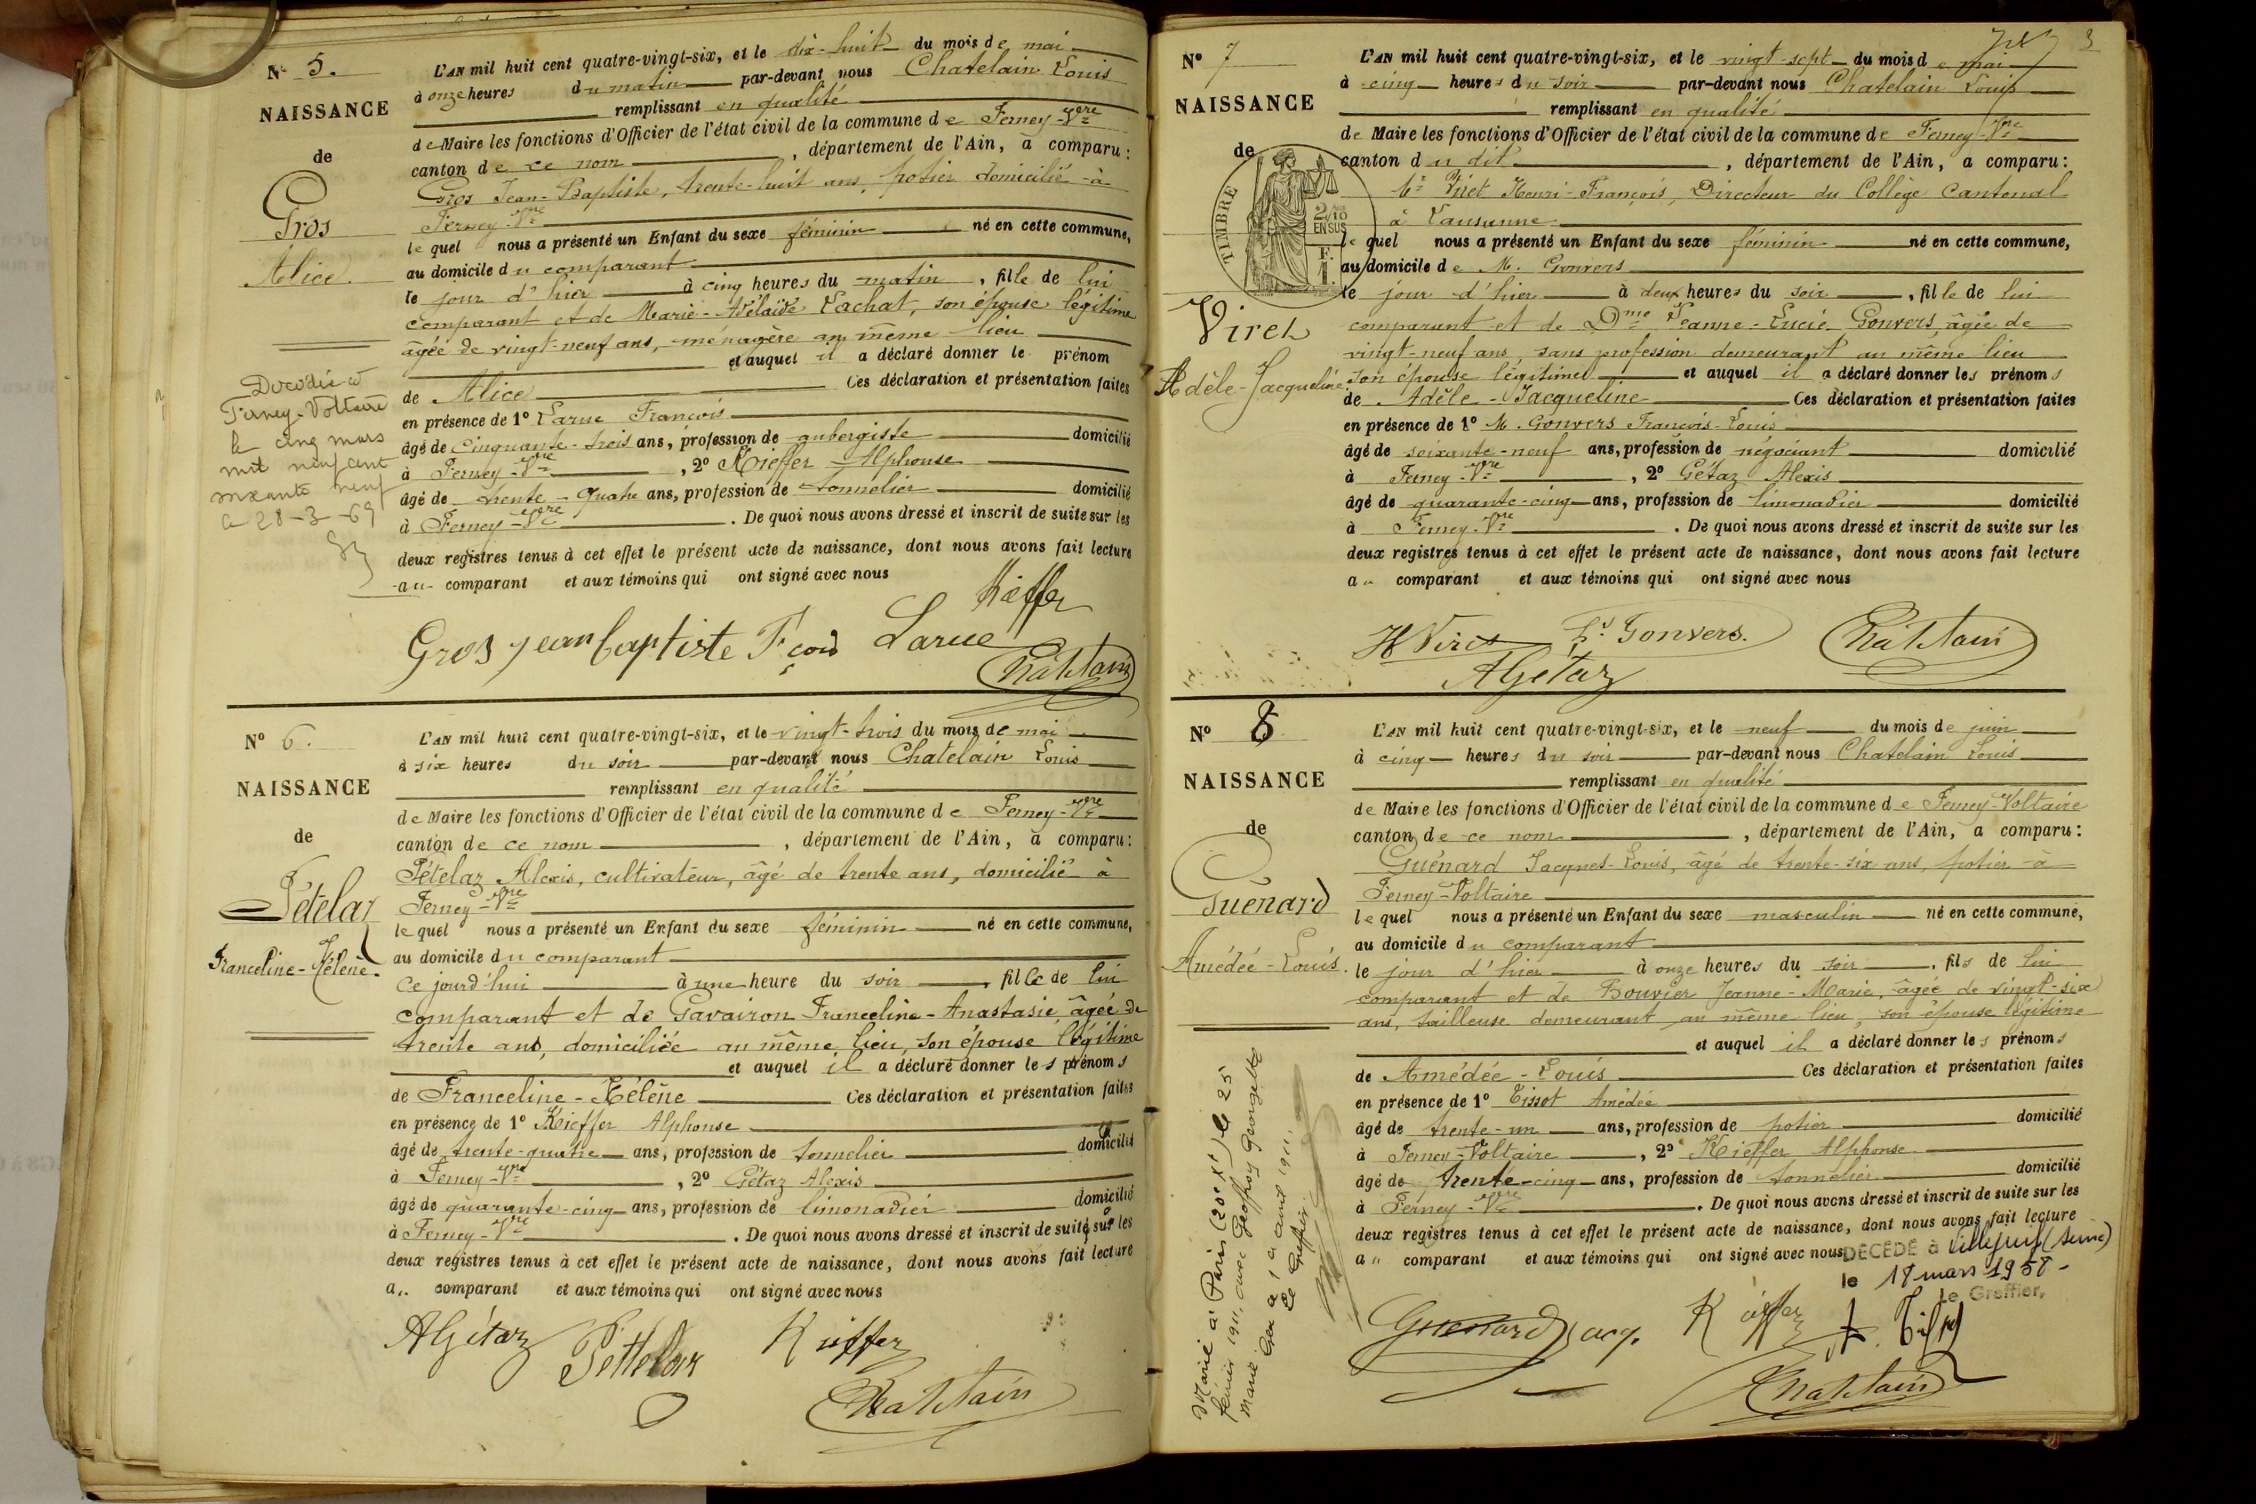 N° 5.
NAISSANCE
de
Gros
Alice.
Décédée à
Ferney-Voltaire
le cinq mars
mil neuf cent
soixante neuf
a 28-3-69
L'AN mil huit cent quatre-vingt-six, et le dix-huit du mois de mai
à onze heures du matin par-devant nous Chatelain Louis
remplissant en qualité
de Maire les fonctions d'Officier de l'état civil de la commune de Ferney-Vre
canton de ce nom, département de l'Ain, a comparu :
Gros Jean-Baptiste, trente-huit ans, potier domicilié à
Ferney-Vre
lequel nous a présenté un Enfant du sexe féminin né en cette commune,
au domicile du comparant
le jour d'hier à cinq heures du matin, fille de lui
comparant et de Marie-Adélaïde Lachat, son épouse légitime
âgée de vingt-neuf ans, ménagère au même lieu
et auquel il a déclaré donner le prénom
de Alice Ces déclaration et présentation faites
en présence de 1° Larue François
âgé de cinquante-trois ans, profession de aubergiste domicilié
à Ferney-Vre, 2° Kieffer Alphonse
âgé de trente-quatre ans, profession de tonnelier domicilié
à Ferney-Vre. De quoi nous avons dressé et inscrit de suite sur les
deux registres tenus à cet effet le présent acte de naissance, dont nous avons fait lecture
au comparant et aux témoins qui ont signé avec nous
Kieffer
Gros jean baptiste Fçois Larue
Châtelain
N° 6.
NAISSANCE
de
Pételaz
Franceline-Hélène.
L'AN mil huit cent quatre-vingt-six, et le vingt-trois du mois de mai
à six heures du soir par-devant nous Chatelain Louis
remplissant en qualité
de Maire les fonctions d'Officier de l'état civil de la commune de Ferney-Vre
canton de ce nom, département de l'Ain, a comparu :
Pételaz Alexis, cultivateur, âgé de trente ans, domicilié à
Ferney-Vre
lequel nous a présenté un Enfant du sexe féminin né en cette commune,
au domicile du comparant
Ce jourd'hui à une heure du soir, fille de lui
comparant et de Gavairon Franceline-Anastasie âgée de
trente ans, domiciliée au même lieu, son épouse légitime
et auquel il a déclaré donner les prénoms
de Franceline-Hélène Ces déclaration et présentation faites
en présence de 1° Kieffer Alphonse
âgé de trente-quatre ans, profession de tonnelier domicilié
à Ferney-Vre, 2° Gétaz Alexis
âgé de quarante-cinq ans, profession de limonadier domicilié
à Ferney-Vre. De quoi nous avons dressé et inscrit de suite sur les
deux registres tenus à cet effet le présent acte de naissance, dont nous avons fait lecture
au comparant et aux témoins qui ont signé avec nous
AGétaz Pettelaz Kieffer
Châtelain
3
N° 7
NAISSANCE
de
TIMBRE
2/10
EN SUS
F.
1.
Viret
Adèle-Jacqueline.
L'AN mil huit cent quatre-vingt-six, et le vingt-sept du mois de mai
à cinq heures du soir par-devant nous Chatelain Louis
remplissant en qualité
de Maire les fonctions d'Officier de l'état civil de la commune de Ferney-Vre
canton du dit, département de l'Ain, a comparu :
Mr Viret Henri-François, Directeur du Collège Cantonal
à Lausanne
lequel nous a présenté un Enfant du sexe féminin né en cette commune,
au domicile de M. Gonvers
le jour d'hier à deux heures du soir, fille de lui
comparant et de Dme Jeanne-Lucie Gonvers, âgée de
vingt-neuf ans, sans profession demeurant au même lieu
son épouse légitime et auquel il a déclaré donner les prénoms
de Adèle-Jacqueline Ces déclaration et présentation faites
en présence de 1° M. Gonvers François-Louis
âgé de soixante-neuf ans, profession de négociant domicilié
à Ferney-Vre, 2° Gétaz Alexis
âgé de quarante-cinq ans, profession de limonadier domicilié
à Ferney-Vre. De quoi nous avons dressé et inscrit de suite sur les
deux registres tenus à cet effet le présent acte de naissance, dont nous avons fait lecture
au comparant et aux témoins qui ont signé avec nous
HViret Ls Gonvers. Châtelain
AGétaz
N° 8
NAISSANCE
de
Guénard
Amédée-Louis.
Marié à Paris (20e Xt) le 25
février 1911, avec Geoffroy Georgette
Le Greffier
L'AN mil huit cent quatre-vingt-six, et le neuf du mois de juin
à cinq heures du soir par-devant nous Chatelain Louis
remplissant en qualité
de Maire les fonctions d'Officier de l'état civil de la commune de Ferney-Voltaire
canton de ce nom, département de l'Ain, a comparu :
Guénard Jacques-Louis, âgé de trente-six ans, potier à
Ferney-Voltaire
lequel nous a présenté un Enfant du sexe masculin né en cette commune,
au domicile du comparant
le jour d'hier à onze heures du soir, fils de lui
comparant et de Bouvier Jeanne-Marie, âgée de vingt-six
ans, tailleuse demeurant au même lieu, son épouse légitime
et auquel il a déclaré donner les prénoms
de Amédée-Louis Ces déclaration et présentation faites
en présence de 1° Tissot Amédée
âgé de trente-un ans, profession de potier domicilié
à Ferney-Voltaire, 2° Kieffer Alphonse
âgé de trente-cinq ans, profession de tonnelier domicilié
à Ferney-Vre. De quoi nous avons dressé et inscrit de suite sur les
deux registres tenus à cet effet le présent acte de naissance, dont nous avons fait lecture
au comparant et aux témoins qui ont signé avec nous
DÉCÉDÉ à Villejuif (Seine)
le 18 mars 1958
Le Greffier,
Guénard Jacq. Kieffer
Châtelain